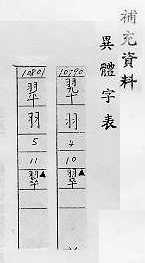 補充資料
異體字表
10790
羽
4
10
▲
10801
羽
5
11
▲